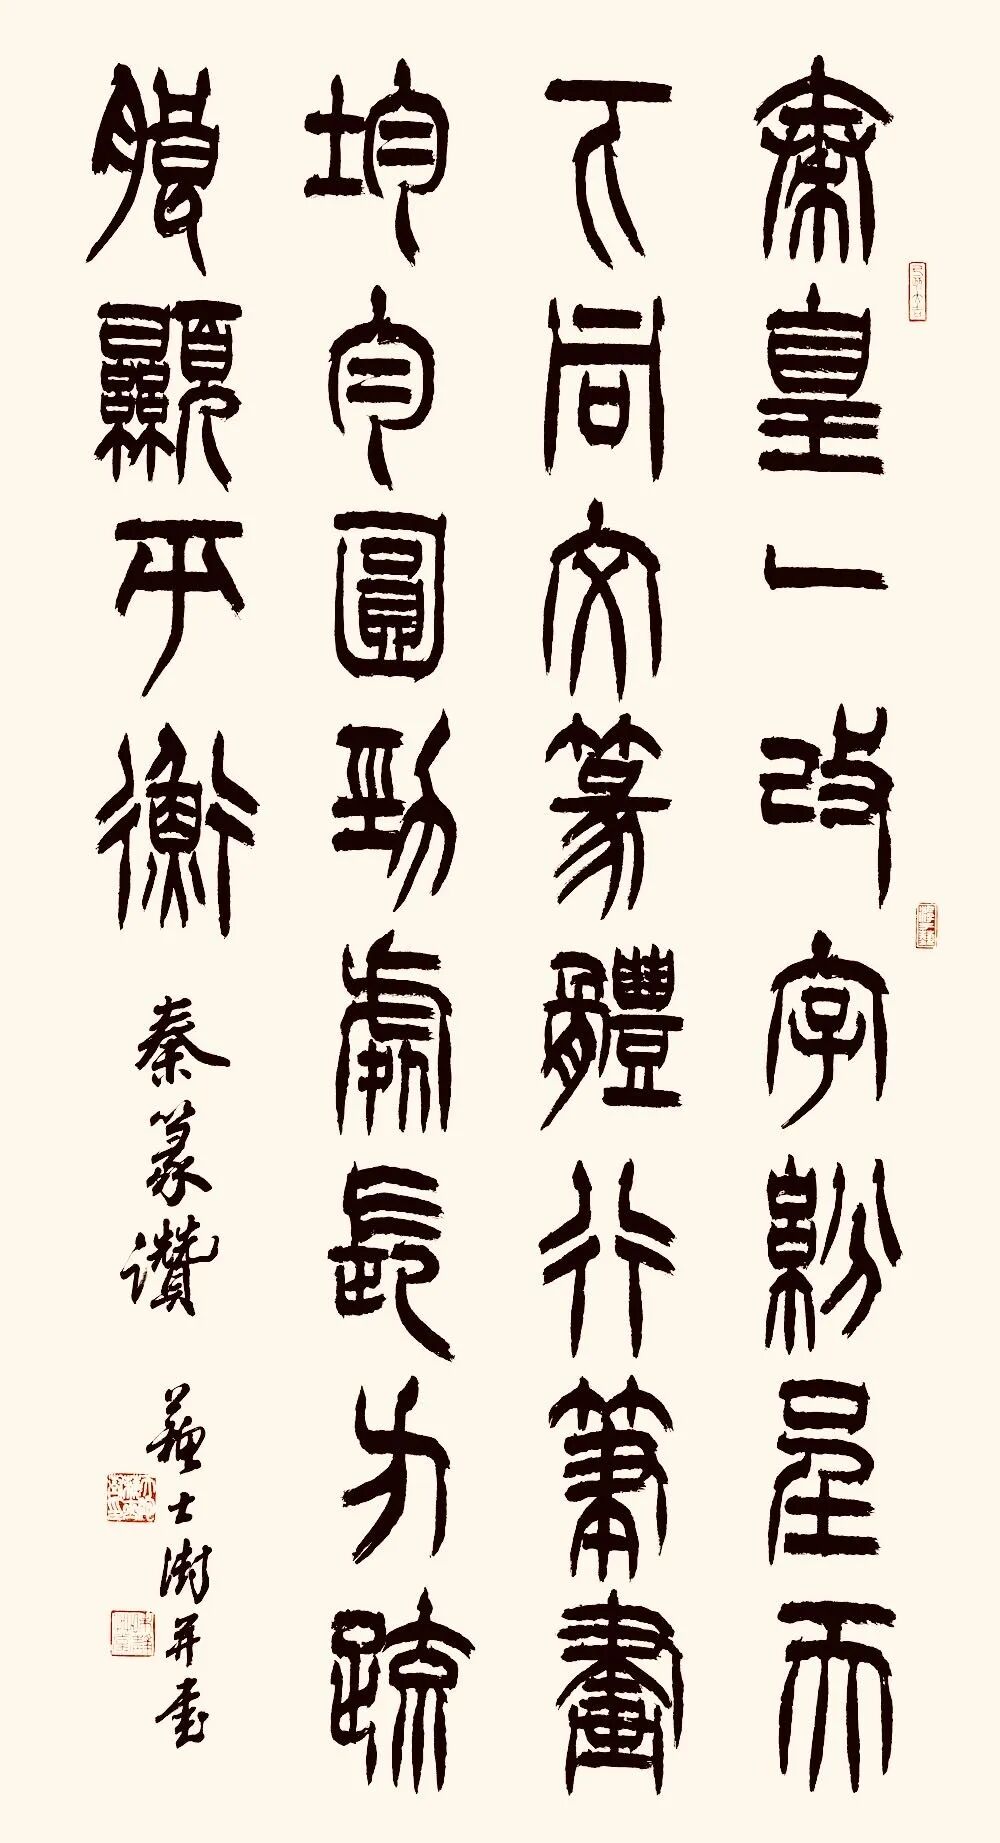 秦皇一改字紛呈天
下同文篆體行筆畫
均勻圓勁處長方疏
朖顯平衡
秦篆讚 蘇士澍并書